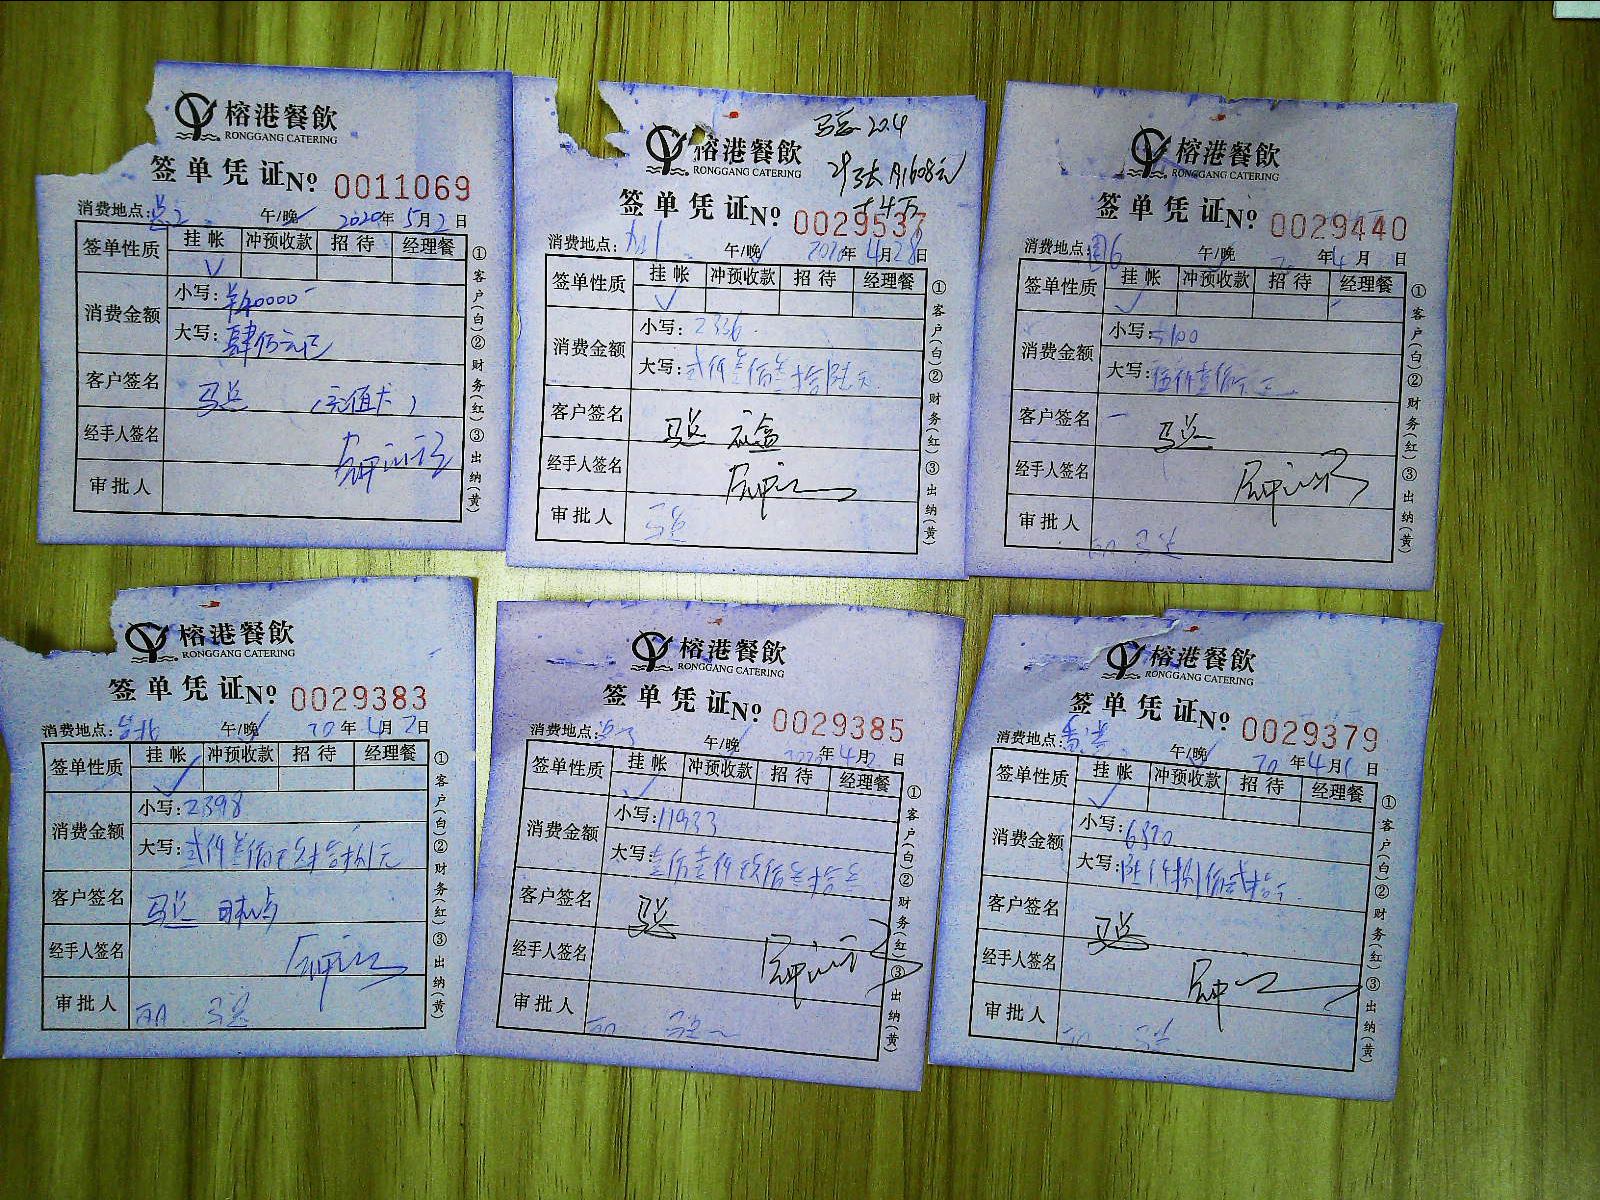 榕港餐飲
RONGGANG CATERING
签单凭证No 0011069
消费地点: 午/晚 2020年5月2日
签单性质 挂帐 冲预收款 招待 经理餐
消费金额
小写: ¥40000-
大写:
客户签名 马总
经手人签名
审批人
①客户(白)②财务(红)③出纳(黄)
马总 20.4
榕港餐飲
RONGGANG CATERING
签单凭证No 0029537
消费地点: 午/晚 2020年4月28日
签单性质 挂帐 冲预收款 招待 经理餐
消费金额
小写: 2336
大写: 贰仟叁佰叁拾陆元
客户签名 马总
经手人签名
审批人 马总
①客户(白)②财务(红)③出纳(黄)
榕港餐飲
RONGGANG CATERING
签单凭证No 0029440
消费地点: 午/晚 年4月 日
签单性质 挂帐 冲预收款 招待 经理餐
消费金额
小写: 5100
大写: 伍仟壹佰元正
客户签名 马总
经手人签名
审批人 马总
①客户(白)②财务(红)③出纳(黄)
榕港餐飲
RONGGANG CATERING
签单凭证No 0029383
消费地点: 台北 午/晚 20年4月2日
签单性质 挂帐 冲预收款 招待 经理餐
消费金额
小写: 2398
大写: 贰仟叁佰玖拾捌元
客户签名 马总
经手人签名
审批人 马总
①客户(白)②财务(红)③出纳(黄)
榕港餐飲
RONGGANG CATERING
签单凭证No 0029385
消费地点: 午/晚 2020年4月2日
签单性质 挂帐 冲预收款 招待 经理餐
消费金额
小写: 11933
大写: 壹万壹仟玖佰叁拾叁
客户签名 马总
经手人签名
审批人 马总
①客户(白)②财务(红)③出纳(黄)
榕港餐飲
RONGGANG CATERING
签单凭证No 0029379
消费地点: 香港 午/晚 20年4月1日
签单性质 挂帐 冲预收款 招待 经理餐
消费金额
小写: 6820
大写: 陆仟捌佰贰拾元
客户签名 马总
经手人签名
审批人 马总
①客户(白)②财务(红)③出纳(黄)